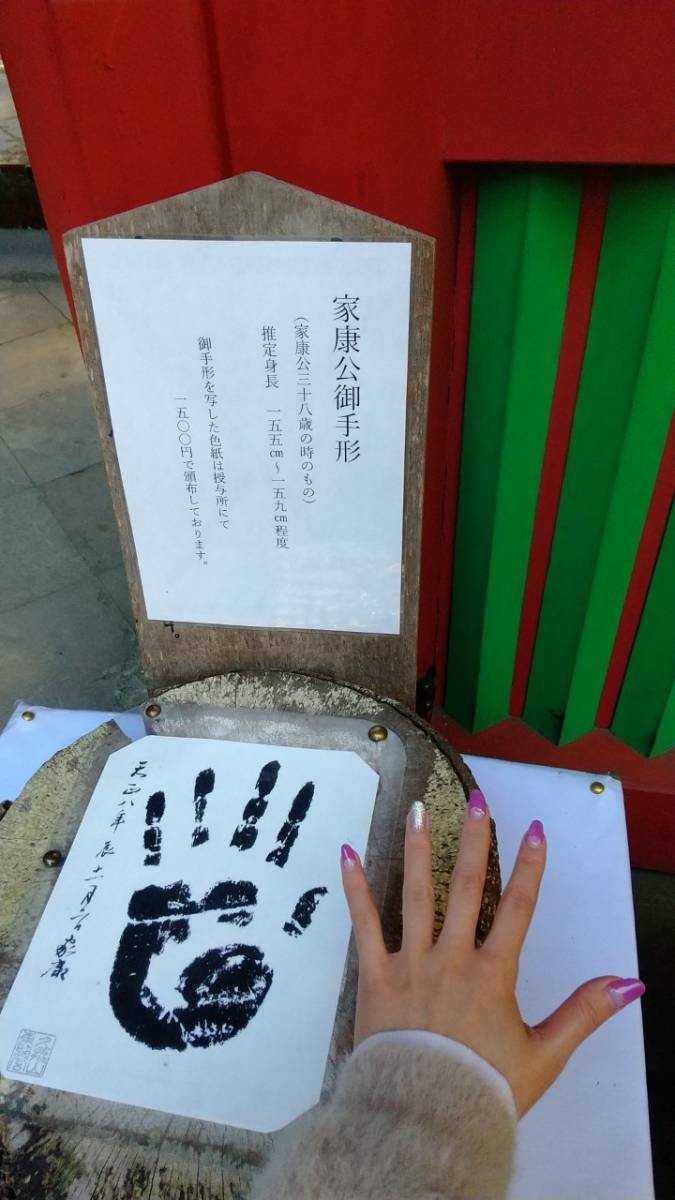 家康公御手形
（家康公三十八歳の時のもの）
推定身長　一五五㎝～一五九㎝程度
御手形を写した色紙は授与所にて
一五〇〇円で頒布しております。
天正八年辰十一月
家康